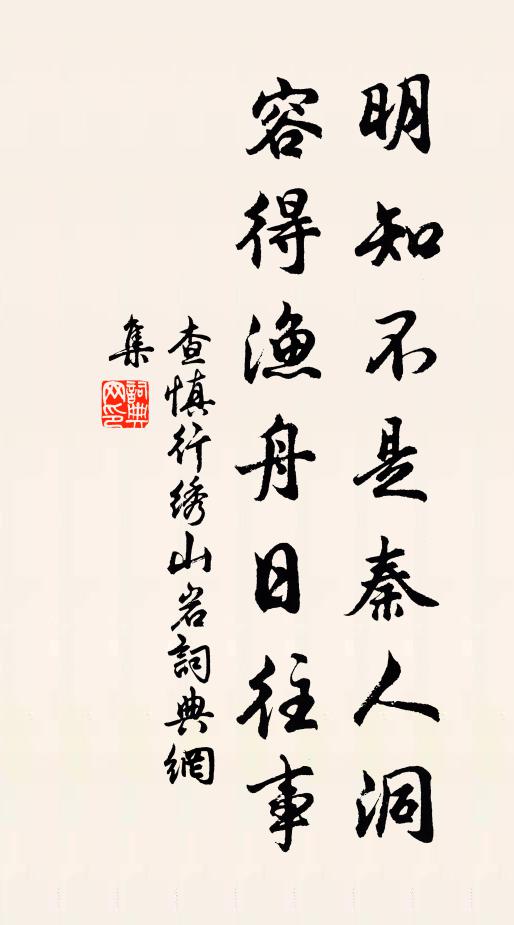 明知不是秦人洞
容得漁舟日往事
查慎行绣山岩詞典網
集
詞典网印